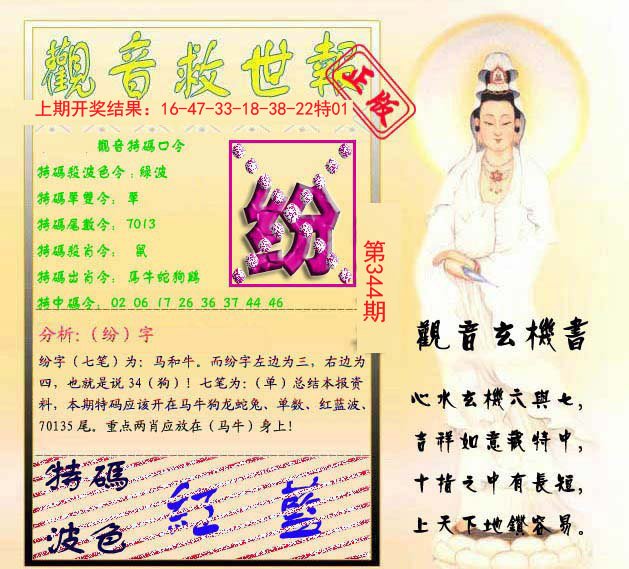 觀音救世報
正版
上期开奖结果：16-47-33-18-38-22特01
觀音特碼口令
特碼殺波色令：綠波
特碼單雙令：單
特碼尾數令：7013
特碼殺肖令：鼠
特碼出肖令：馬牛蛇狗鷄
特中碼令：02 06 17 26 36 37 44 46
纷
第344期
分析：（纷）字
纷字（七笔）为：马和牛。而纷字左边为三，右边为
四，也就是说 34（狗）！七笔为：（单）总结本报资
料，本期特码应该开在马牛狗龙蛇兔、单数、红蓝波、
70135 尾。重点两肖应放在（马牛）身上！
特碼
波色
紅 藍
觀音玄機書
心水玄機六與七，
吉祥如意藏特中，
十指之中有長短，
上天下地鎖容易。